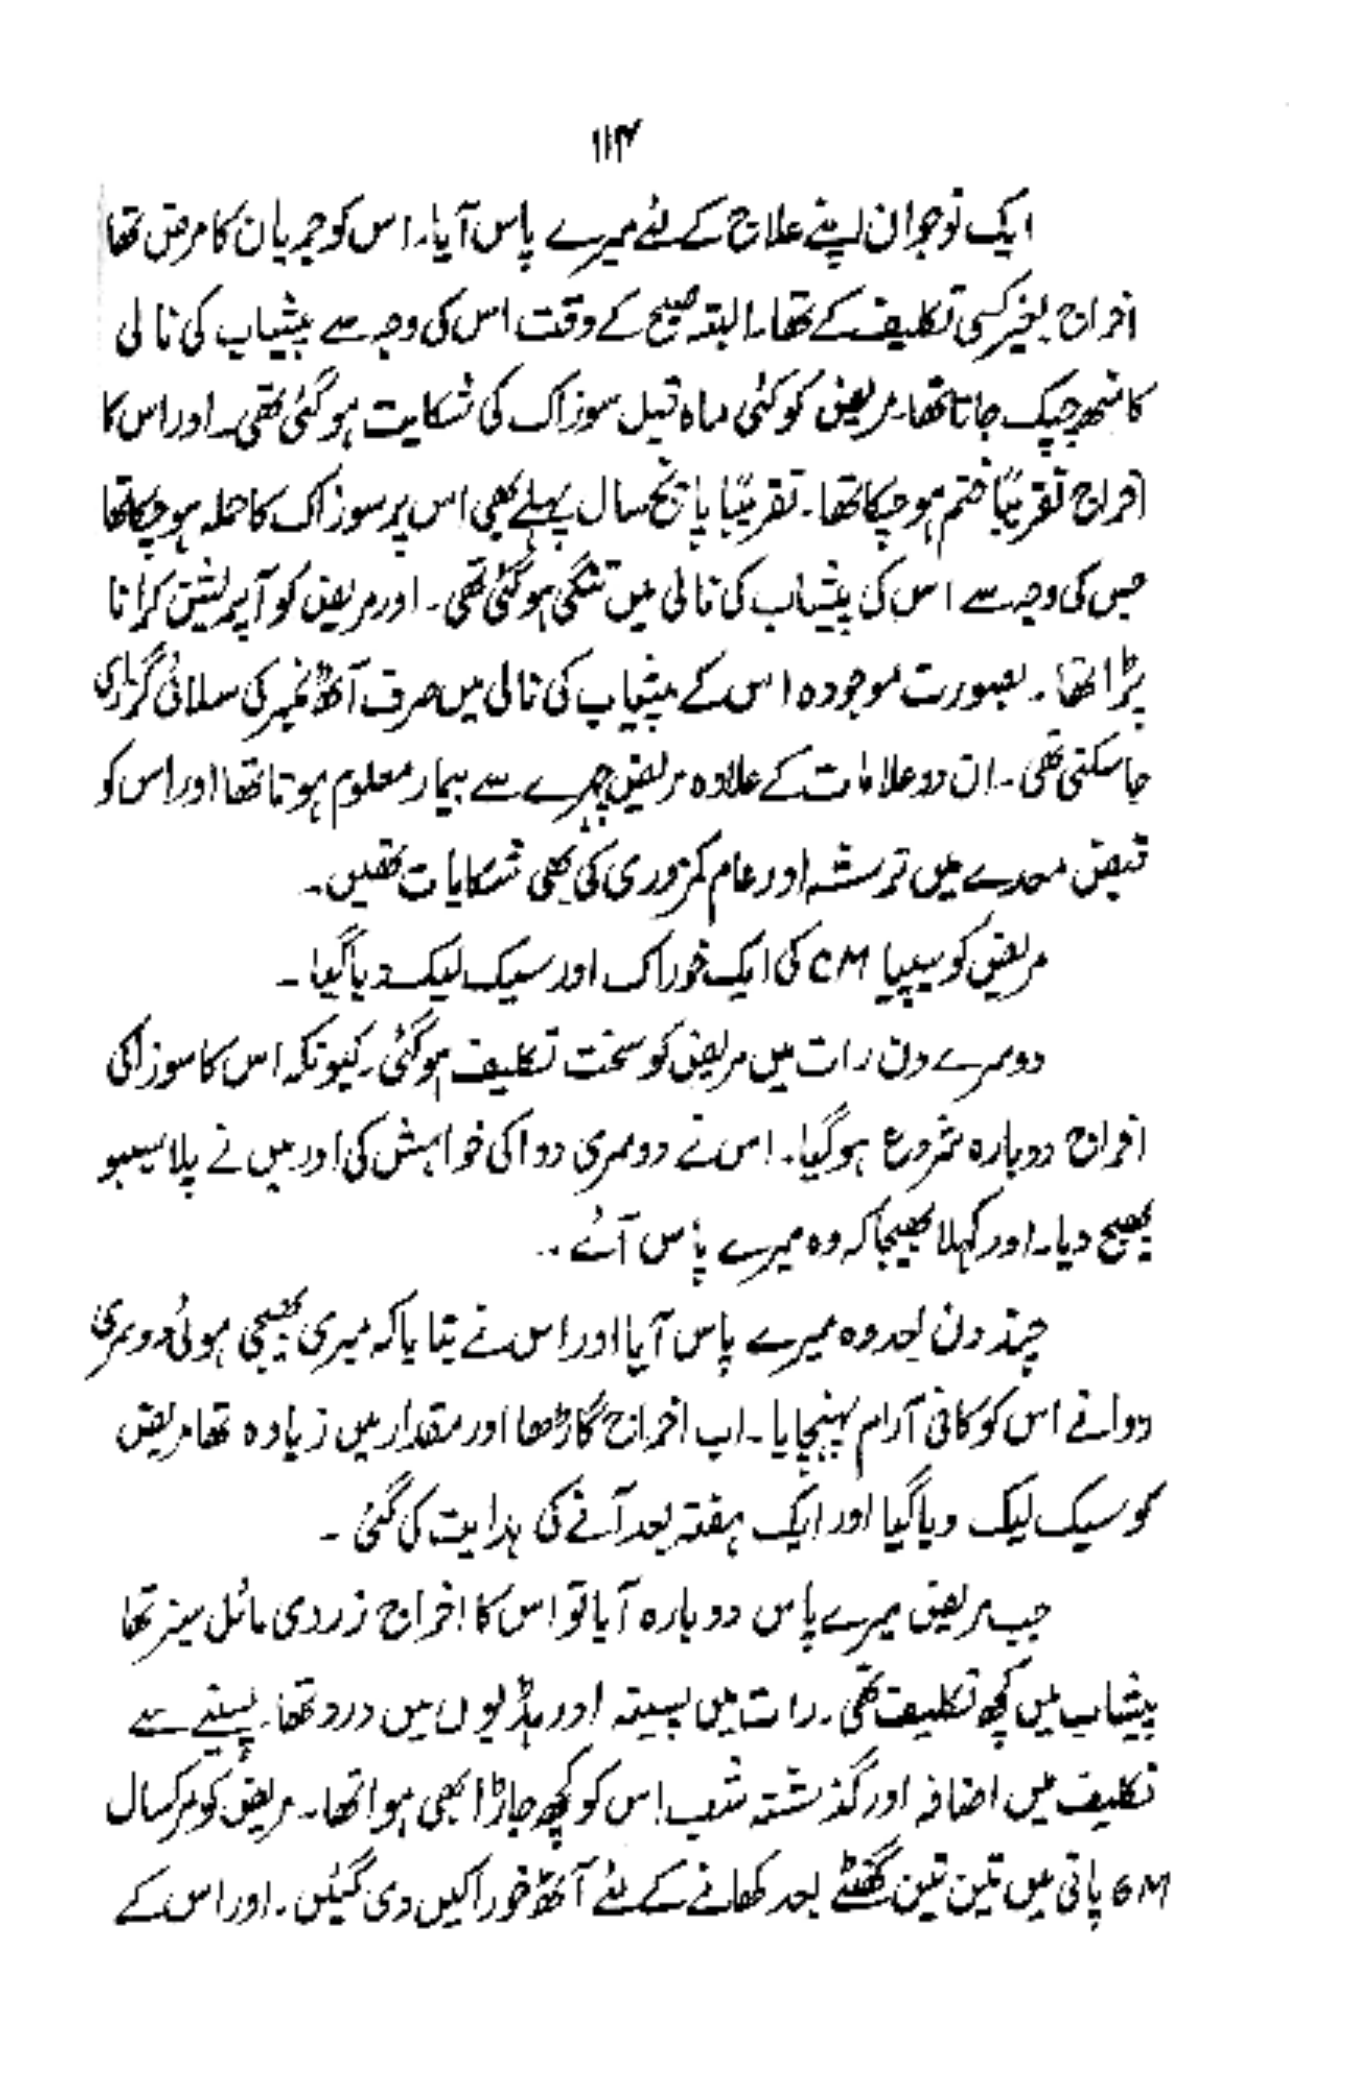 ۱۱۴
ایک نوجوان اپنے علاج کے لئے میرے پاس آیا۔ اس کو جریان کا مرض تھا
اخراج بغیر کسی تکلیف کے تھا۔ البتہ صبح کے وقت اس کی وجہ سے پیشاب کی نالی
کا منھ چپک جاتا تھا۔ مریض کو کئی ماہ قبل سوزاک کی شکایت ہو گئی تھی۔ اور اس کا
اخراج تقریباً ختم ہو چکا تھا۔ تقریباً پانچ سال پہلے بھی اس پر سوزاک کا حملہ ہو چکا تھا
جس کی وجہ سے اس کی پیشاب کی نالی میں تنگی ہو گئی تھی۔ اور مریض کو آپریشن کرانا
پڑا تھا۔ بصورت موجودہ اس کے پیشاب کی نالی میں صرف آٹھ نمبر کی سلائی گزاری
جا سکتی تھی۔ ان دو علامات کے علاوہ مریض چہرے سے بیمار معلوم ہوتا تھا اور اس کو
قبض معدے میں ترشہ اور عام کمزوری کی بھی شکایات تھیں۔
مریض کو سیپیا CM کی ایک خوراک اور سیک لیک دیا گیا۔
دوسرے دن رات میں مریض کو سخت تکلیف ہو گئی۔ کیونکہ اس کا سوزاکی
اخراج دوبارہ شروع ہو گیا۔ اس نے دوسری دوا کی خواہش کی اور میں نے پلاسیبو
بھیج دیا۔ اور کہلا بھیجا کہ وہ میرے پاس آئے۔
چند دن بعد وہ میرے پاس آیا اور اس نے بتایا کہ میری بھیجی ہوئی دوسری
دوا نے اس کو کافی آرام پہنچایا۔ اب اخراج گاڑھا اور مقدار میں زیادہ تھا مریض
کو سیک لیک دیا گیا اور ایک ہفتہ بعد آنے کی ہدایت کی گئی۔
جب مریض میرے پاس دوبارہ آیا تو اس کا اخراج زردی مائل سبز تھا
پیشاب میں کچھ تکلیف تھی۔ رات میں پسینہ اور ہڈیوں میں درد تھا۔ پسینے سے
تکلیف میں اضافہ اور گذشتہ شب اس کو کچھ جاڑا بھی ہوا تھا۔ مریض کو مرکسال
6M پانی میں تین تین گھنٹے بعد کھانے کے لئے آٹھ خوراکیں دی گئیں۔ اور اس کے